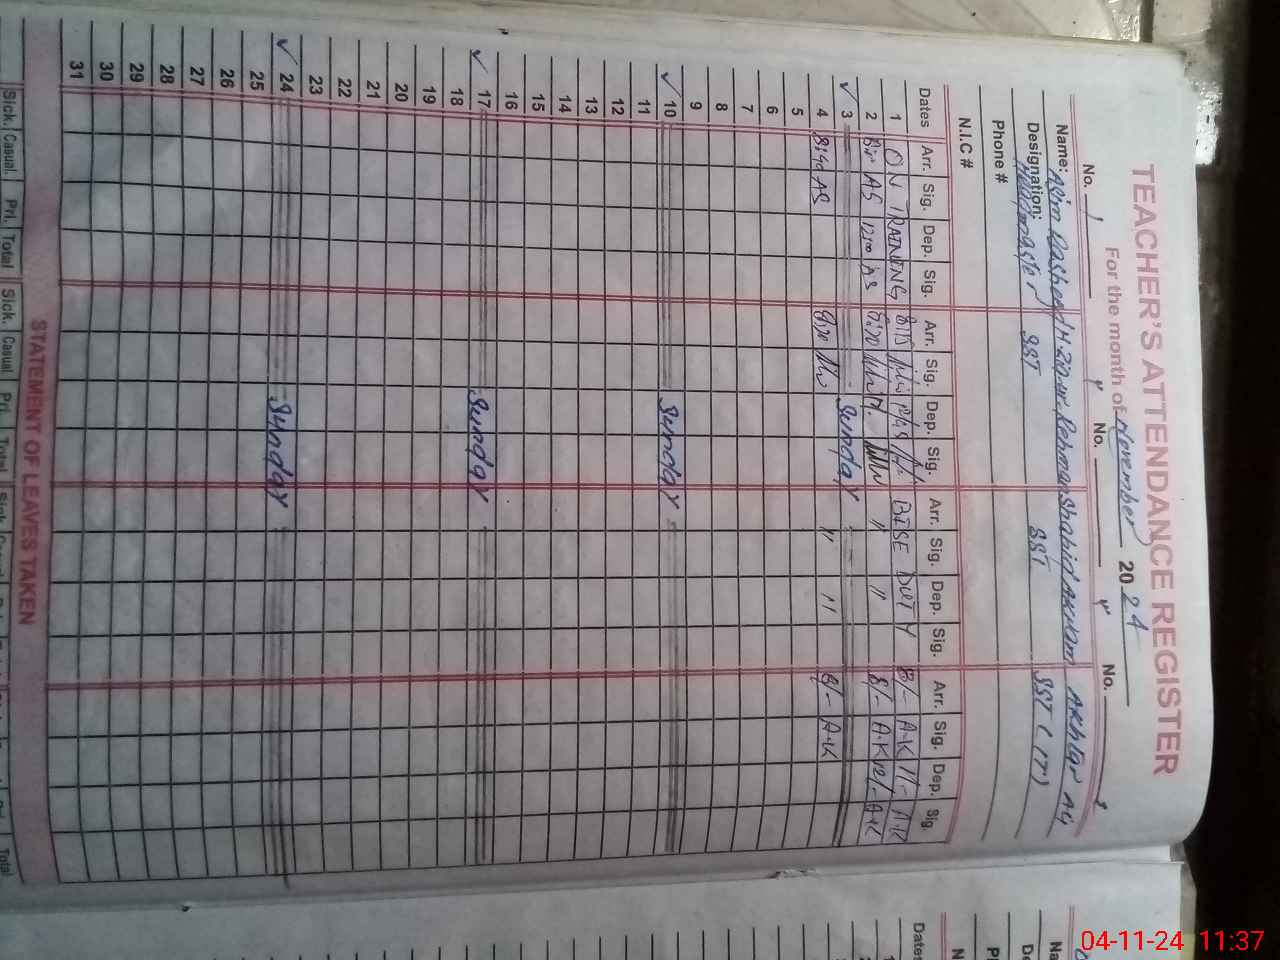 TEACHER'S ATTENDANCE REGISTER
For the month of November 2024
No. 1 " No. " No.
Name: Asim Rasheed H. Zia-ur-Rehman Shahid Akram Akhtar Ali
Designation: Headmaster SST SST SST (IT)
Phone #
N.I.C #
Dates Arr. Sig. Dep. Sig. Arr. Sig. Dep. Sig. Arr. Sig. Dep. Sig. Arr. Sig. Dep. Sig.
1 ON TRAINING 8:15 BISE DUTY 8/- A.K 11/- A.K
2 AS 12:00 AS " " 8/- A.K 12/- A.K
3 Sunday
4 8:40 AS 8:30 " " 8/- A.K
5
6
7
8
9
10 Sunday
11
12
13
14
15
16
17 Sunday
18
19
20
21
22
23
24 Sunday
25
26
27
28
29
30
31
STATEMENT OF LEAVES TAKEN
Sick. Casual. Pri. Total Sick. Casual Pri. Total
Dates
04-11-24 11:37